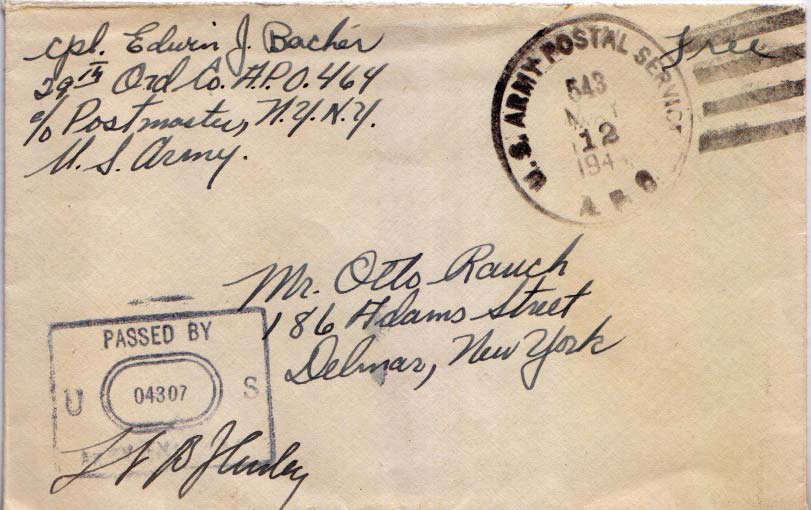 Cpl. Edwin J. Bacher
29th Ord Co. A.P.O. 464
c/o Postmaster, N.Y. N.Y.
U. S. Army.
U.S. ARMY POSTAL SERVICE
543
MAY
12
194
A. P. O.
Free
Mr. Otto Rauch
186 Adams Street
Delmar, New York
PASSED BY
U 04307 S